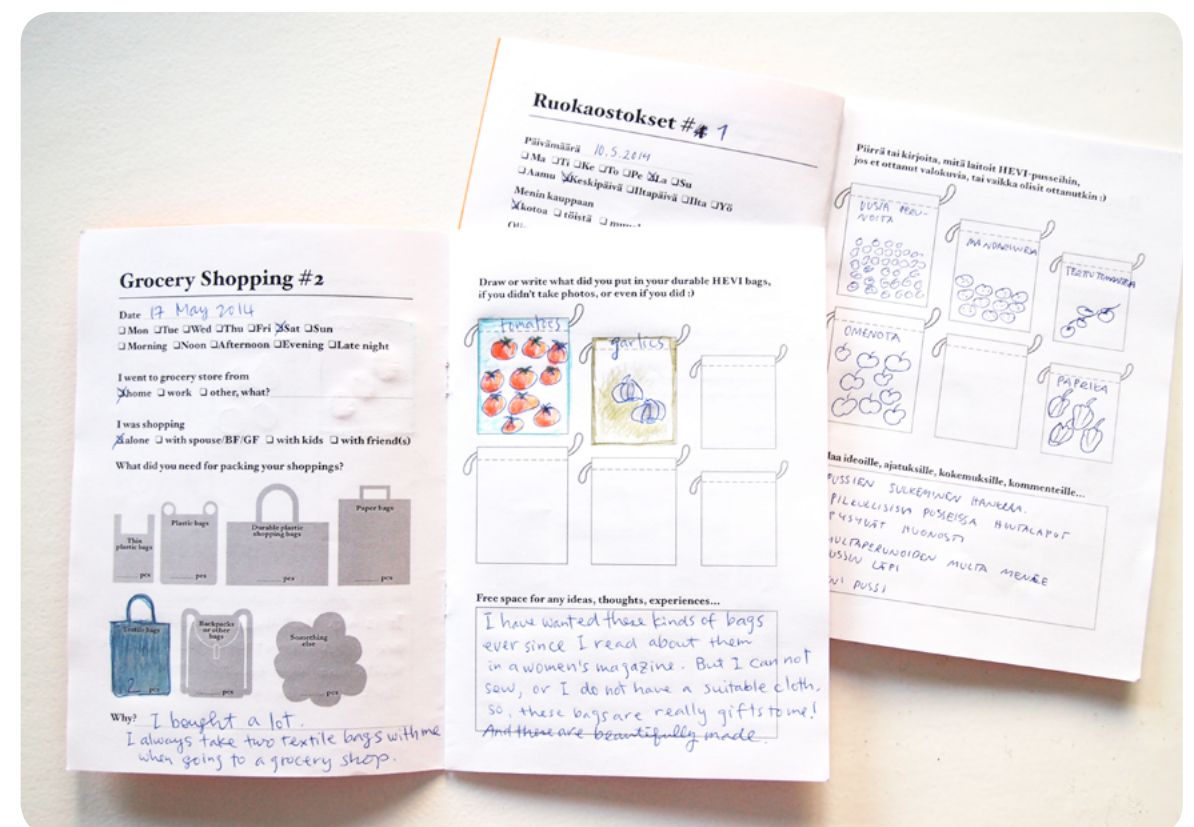 Grocery Shopping #2
Date 17 May 2014
Mon Tue Wed Thu Fri Sat Sun
Morning Noon Afternoon Evening Late night
I went to grocery store from
home work other, what?
I was shopping
alone with spouse/BF/GF with kids with friend(s)
What did you need for packing your shoppings?
Thin
plastic bags
pcs
Plastic bags
pcs
Durable plastic
shopping bags
pcs
Paper bags
pcs
Textile bags
2 pcs
Backpacks
or other
bags
pcs
Something
else
pcs
Why? I bought a lot.
I always take two textile bags with me
when going to a grocery shop.
Draw or write what did you put in your durable HEVI bags,
if you didn't take photos, or even if you did :)
tomatoes
garlics
Free space for any ideas, thoughts, experiences...
I have wanted these kinds of bags
ever since I read about them
in a women's magazine. But I can not
sew, or I do not have a suitable cloth.
so, these bags are really gifts to me!
And these are beautifully made.
Ruokaostokset # 1
Päivämäärä 10.5.2014
Ma Ti Ke To Pe La Su
Aamu Keskipäivä Iltapäivä Ilta Yö
Menin kauppaan
kotoa töistä
Piirrä tai kirjoita, mitä laitoit HEVI-pusseihin,
jos et ottanut valokuvia, tai vaikka olisit ottanutkin :)
UUSIA PERU-
NOITA
MANDARIINEJA
TERTTUTOMAATTEJA
OMENOITA
PAPRIKA
ideoille, ajatuksille, kokemuksille, kommenteille...
PUSSIEN SULKEMINEN HANKALAA.
PILKULLISISSA PUSSEISSA HINTALAPUT
PYSYVÄT HUONOSTI
MULTAPERUNOIDEN MULTA MENEE
PUSSIN LÄPI
PUSSI